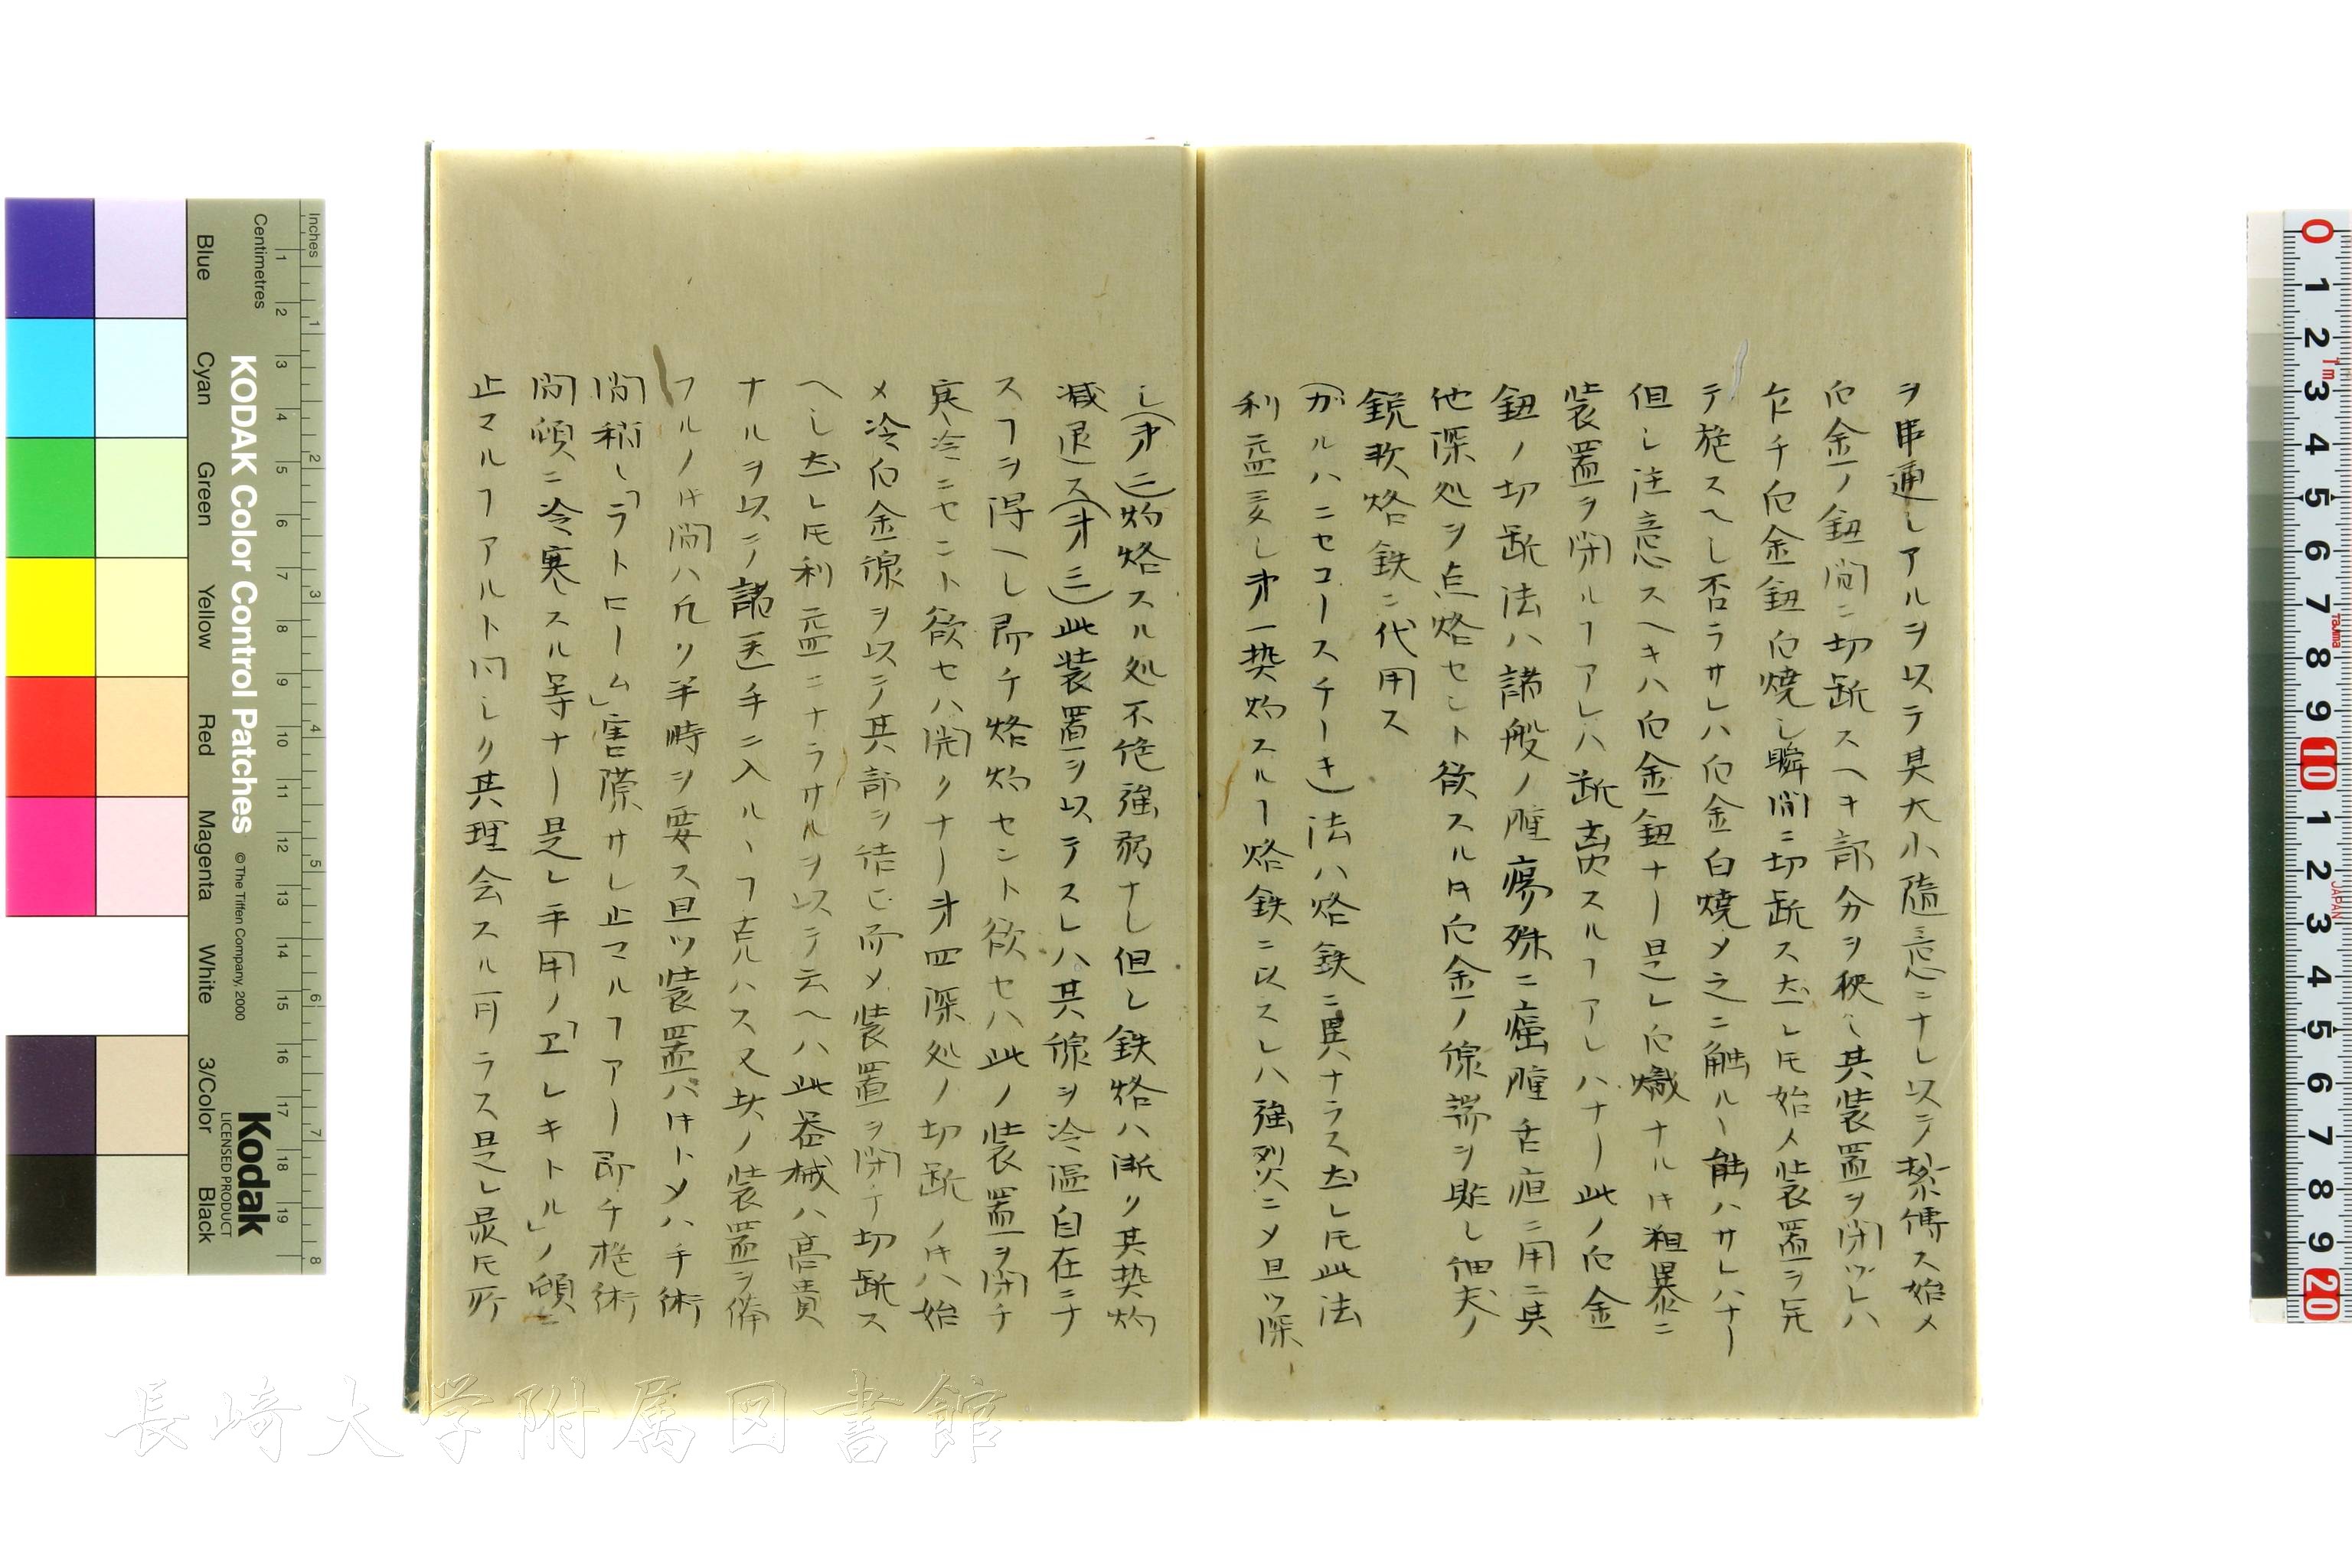 ヲ串通シアルヲ以テ其大小随意ニナシ以テ繋傅ス始メ
白金ノ鈕間ニ切断スヘキ部分ヲ狹ミ其装置ヲ閉ツレハ
乍チ白金鈕白焼シ瞬間ニ切断ス尤レ𪜈始メ装置ヲ充
テ施スヘし否ラサレハ白金白焼メ之ニ触ルヽ能ハサレハナー
但し注意スヘキハ白金鈕ナー是レ白熾ナル𪜈粗暴ニ
装置ヲ閉ルヿアレハ断离スルヿアレハナー此ノ白金
鈕ノ切断法ハ諸般ノ腫瘍殊ニ癌腫舌疽ニ用ニ其
他深処ヲ点烙セント欲スルキ白金ノ線端ヲ出し
鋭軟烙鉄ニ代用ス
(ガルハニセコースチーキ)法ハ烙鉄ニ異ナラス尤レ𪜈此法
利益多し才一焼灼スルヿ烙鉄ニ以スレハ強烈ニメ且ツ深
し(才二)灼烙スル処不絶強弱ナし但し鉄烙ハ漸リ其焼灼
減退ス(才三)此装置ヲ以テスレハ其線ヲ冷温自在ニナ
スヿヲ得ヘし即チ烙灼セント欲セハ此ノ装置ヲ閉チ
寒冷ニセント欲セハ開クナー才四深処ノ切断ノキハ始
メ冷白金線ヲ以テ其部ヲ而メ装置ヲ閉チ切断ス
ヘし尤レ𪜈利益ニナラサルヲ以テ云ヘハ此器械ハ高貴
ナルヲ以テ諸医手ニ入ルヽヿ克ハス又其ノ装置ヲ備
フルノキ間ハ凡ソ半時ヲ要ス且ツ装置ハキトメハ手術
間稍し「ラトローム」害際サレ止マルヿアー即チ施術
間頃ニ冷寒スル等ナー是レ平用ノ「ヱレキトル」ノ頃ニ
止マルヿアルト同しク其理会スル可ラス是レ最𪜈所
KODAK Color Control Patches
© The Tiffen Company, 2000
Kodak
LICENSED PRODUCT
Inches
Centimetres
1 2 3 4 5 6 7 8 9 10 11 12 13 14 15 16 17 18 19
1 2 3 4 5 6 7 8
Blue Cyan Green Yellow Red Magenta White 3/Color Black
0 1 2 3 4 5 6 7 8 9 10 1 2 3 4 5 6 7 8 9 20
JAPAN
長崎大学附属図書館